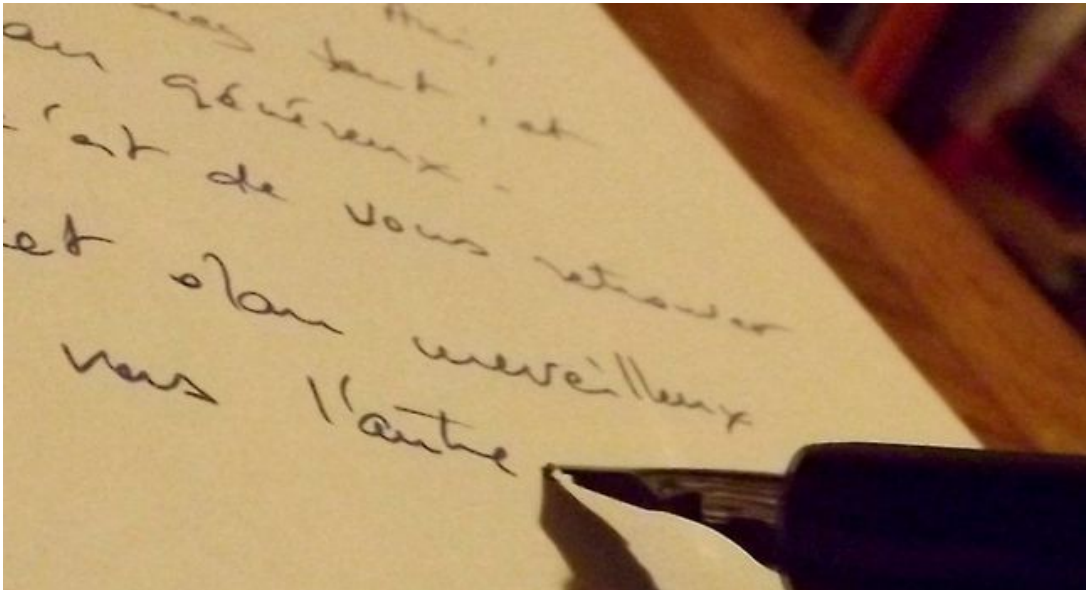 tout, et
an généreux.
c'est de vous retrouver
cet élan merveilleux
vers l'autre